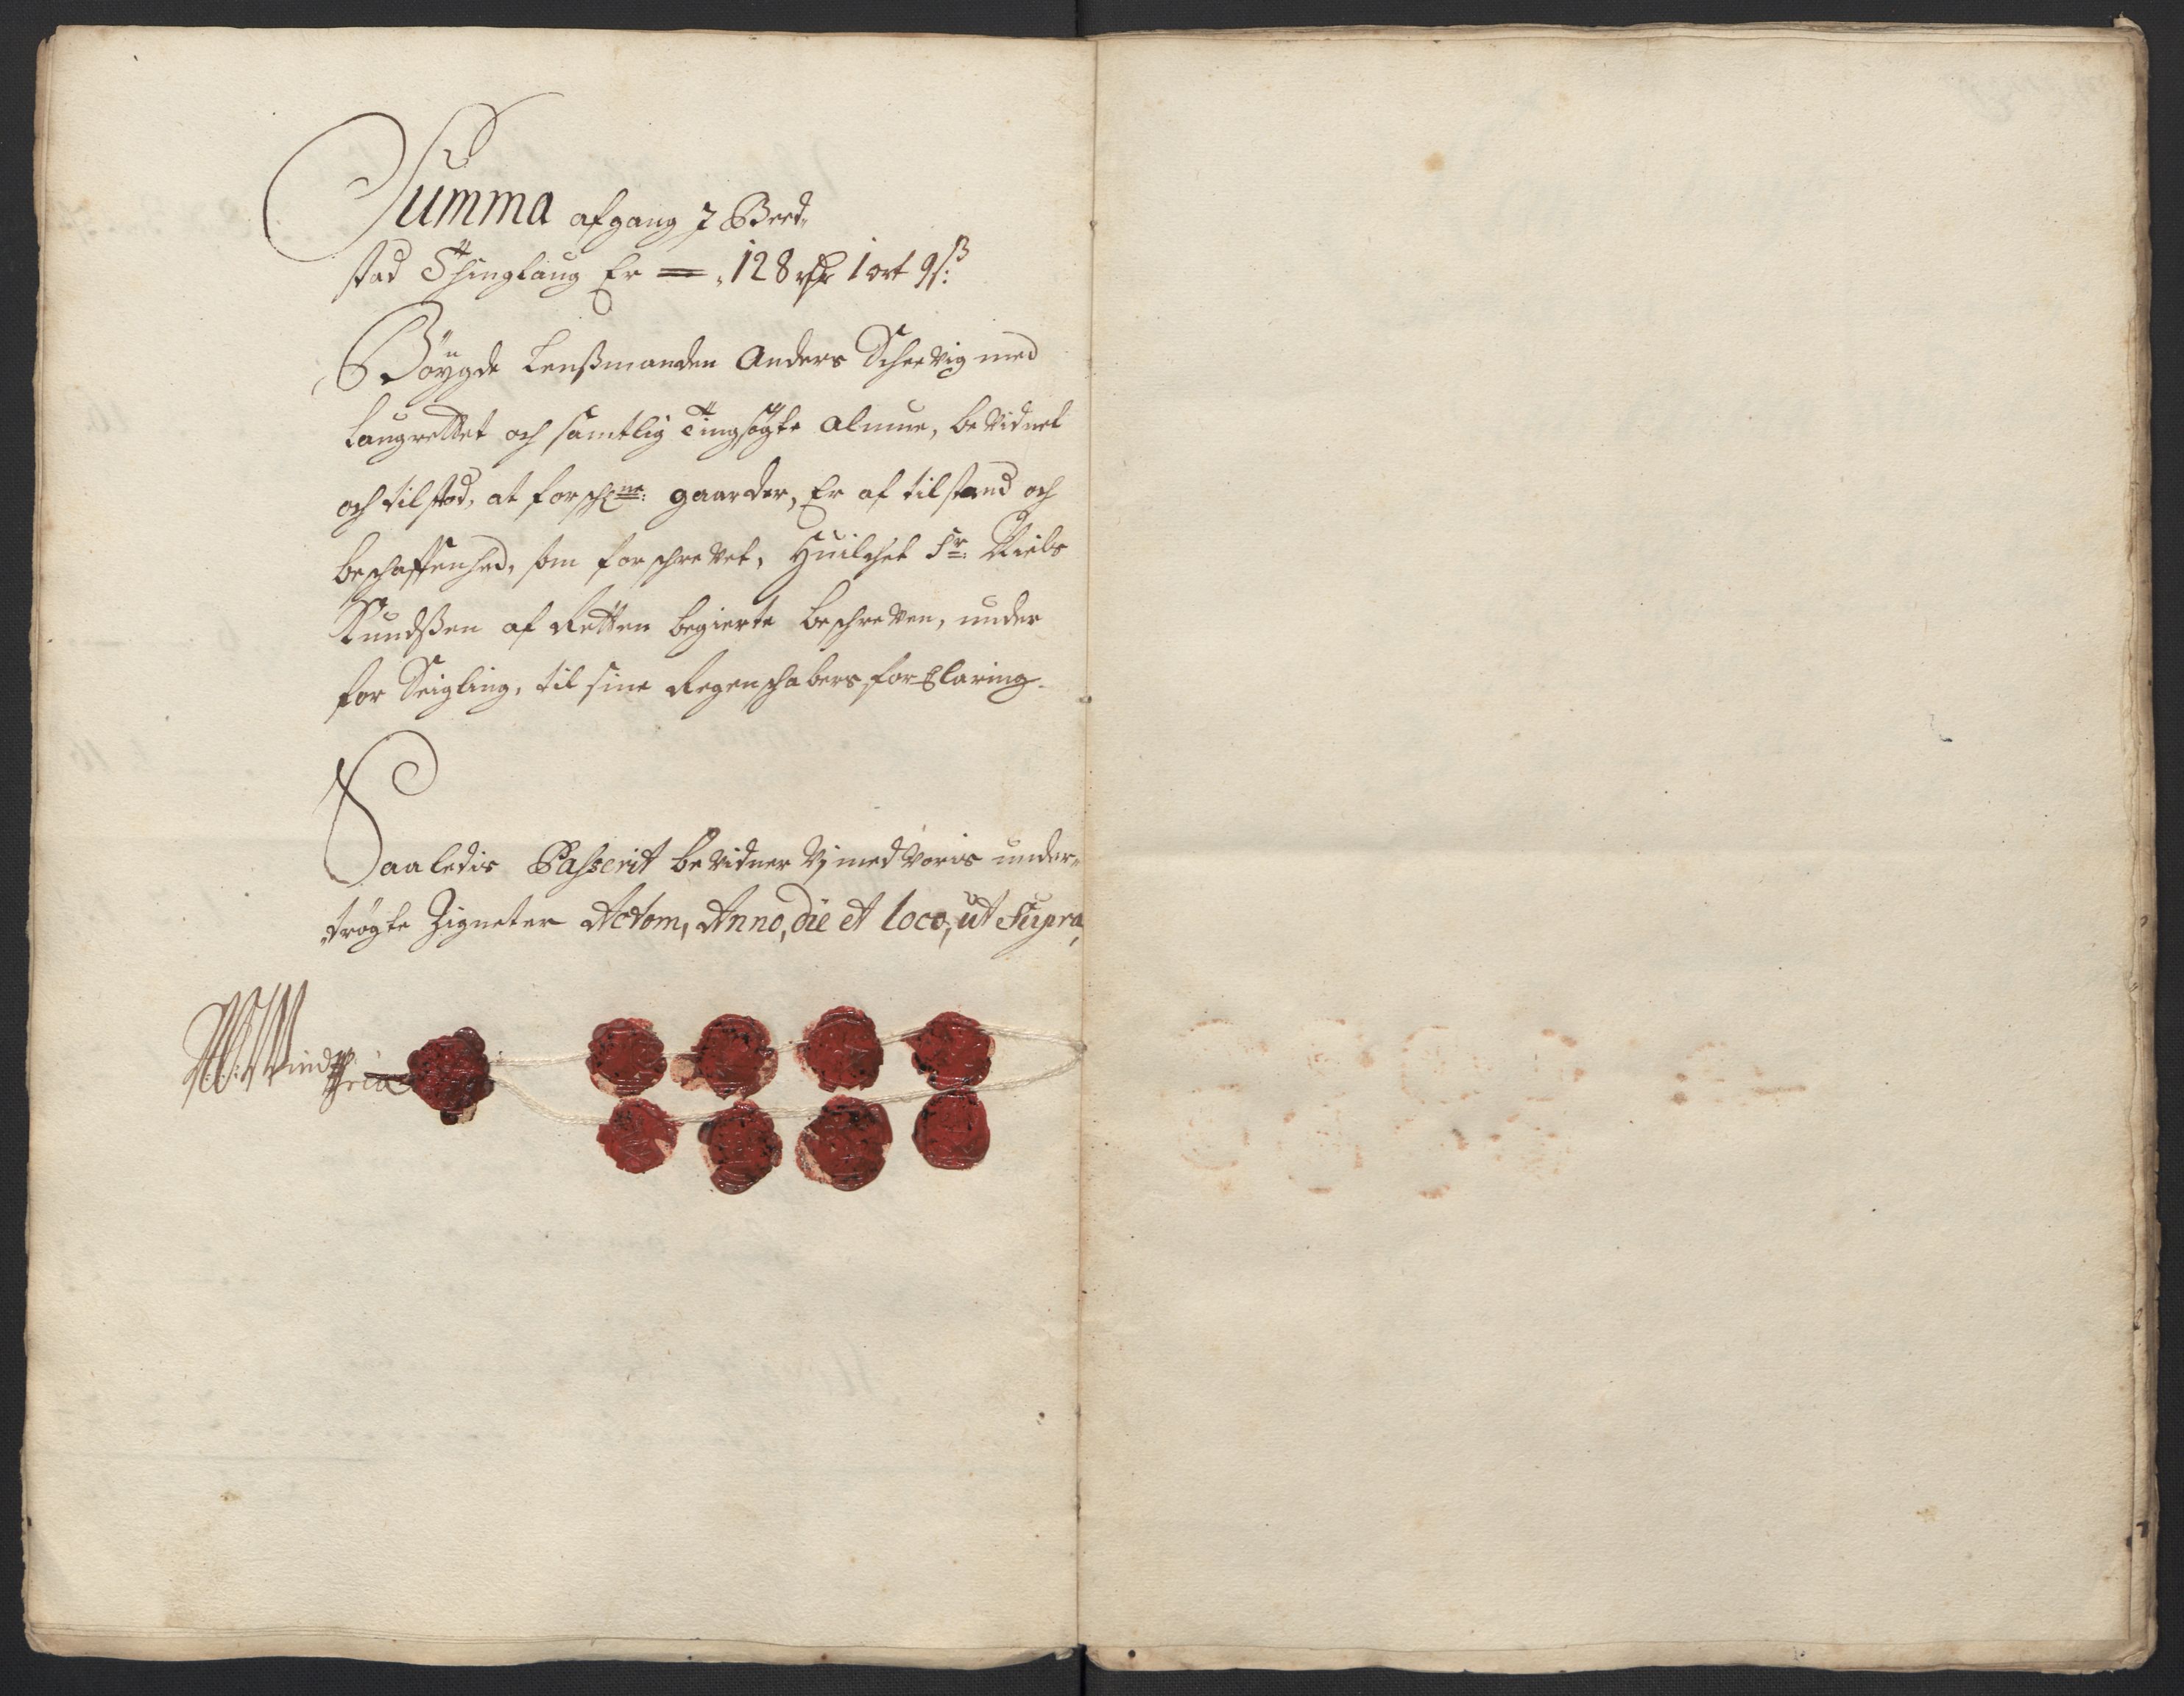 Summa afgang J Beed,,
stad Thinglaug Er = ,128 rdr 1 ort 9 ß:
Böygde Lenßmanden Anders Scheevig med
Laugrettet och samtlig Tingsøgte Almue, be Vidnet
och tilstod, at forschne: gaarder, Er af tilstand och
beschaffenhed, som forschrevet, Huilchet Sr: Niels
Knudßen af Retten begierte beschreven, under
for Seigling, til sine Regenschabers forClaring.
Saaledis Passerit be Vidner Vj med Voris under,,
,,trøgte Zigneter Actom, Anno, die et loco, ut Supra,